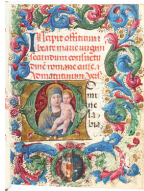 Incipit offitium b
beate marie virgin
secundum consuetu
dinē romane curie.
Ad matutinum Vers.
o
mine
labia